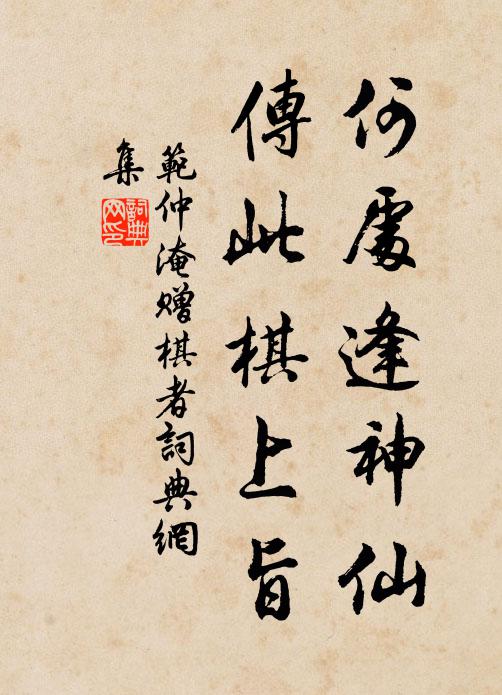 何處逢神仙
傳此棋上旨
範仲淹贈棋者詞典網
集
詞典
网印